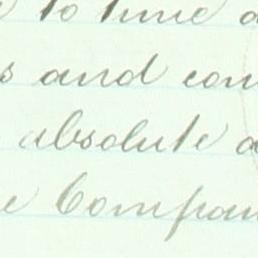 to time a
s and con
absolute a
e Compan